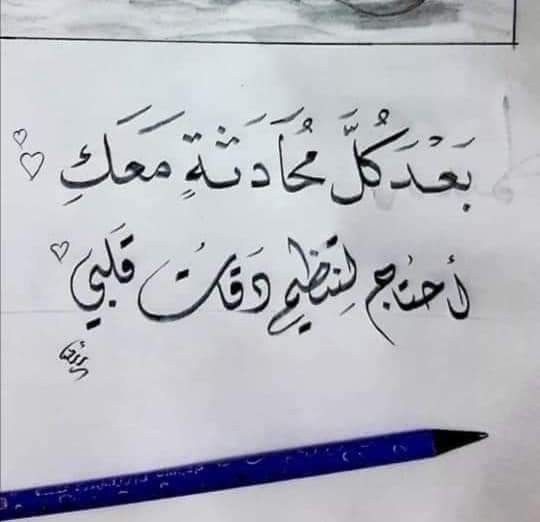 بَعْدَ كُلِّ مُحَادَثَةٍ مَعَكِ
أحتاج لِتنظيم دَقاتُ قَلبي